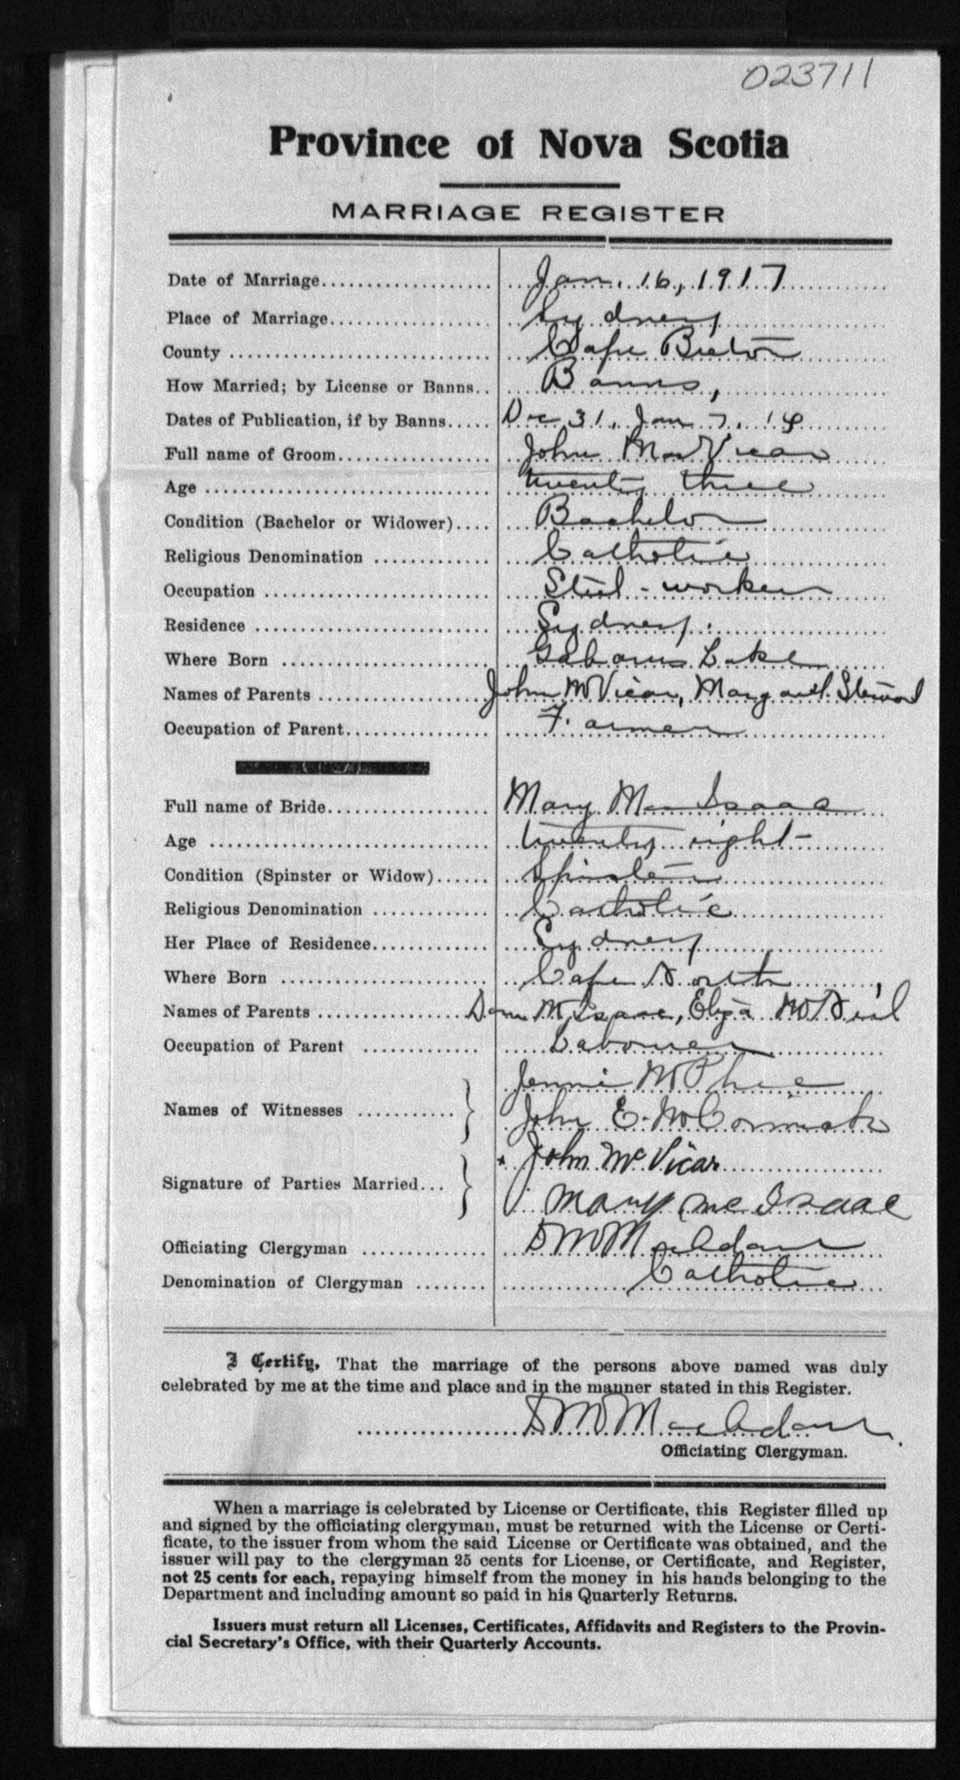 023711
Province of Nova Scotia
MARRIAGE REGISTER
Date of Marriage Jan. 16, 1917
Place of Marriage Sydney
County Cape Breton
How Married; by License or Banns Banns,
Dates of Publication, if by Banns Dec 31, Jan 7, 14
Full name of Groom John MacVicar
Age twenty three
Condition (Bachelor or Widower) Bachelor
Religious Denomination Catholic
Occupation Steel-worker
Residence Sydney
Where Born Gabarus Lake
Names of Parents John McVicar, Margaret Steward
Occupation of Parent Farmer
Full name of Bride Mary MacIsaac
Age twenty eight
Condition (Spinster or Widow) Spinster
Religious Denomination Catholic
Her Place of Residence Sydney
Where Born Cape North,
Names of Parents Dan McIsaac, Eliza McNeil
Occupation of Parent Labourer
Names of Witnesses Jennie McPhee
John E. McCormick
Signature of Parties Married John McVicar
Mary McIsaac
Officiating Clergyman D M MacAdam
Denomination of Clergyman Catholic
I Certify, That the marriage of the persons above named was duly
celebrated by me at the time and place and in the manner stated in this Register.
D M MacAdam
Officiating Clergyman.
When a marriage is celebrated by License or Certificate, this Register filled up
and signed by the officiating clergyman, must be returned with the License or Certi-
ficate, to the issuer from whom the said License or Certificate was obtained, and the
issuer will pay to the clergyman 25 cents for License, or Certificate, and Register,
not 25 cents for each, repaying himself from the money in his hands belonging to the
Department and including amount so paid in his Quarterly Returns.
Issuers must return all Licenses, Certificates, Affidavits and Registers to the Provin-
cial Secretary's Office, with their Quarterly Accounts.